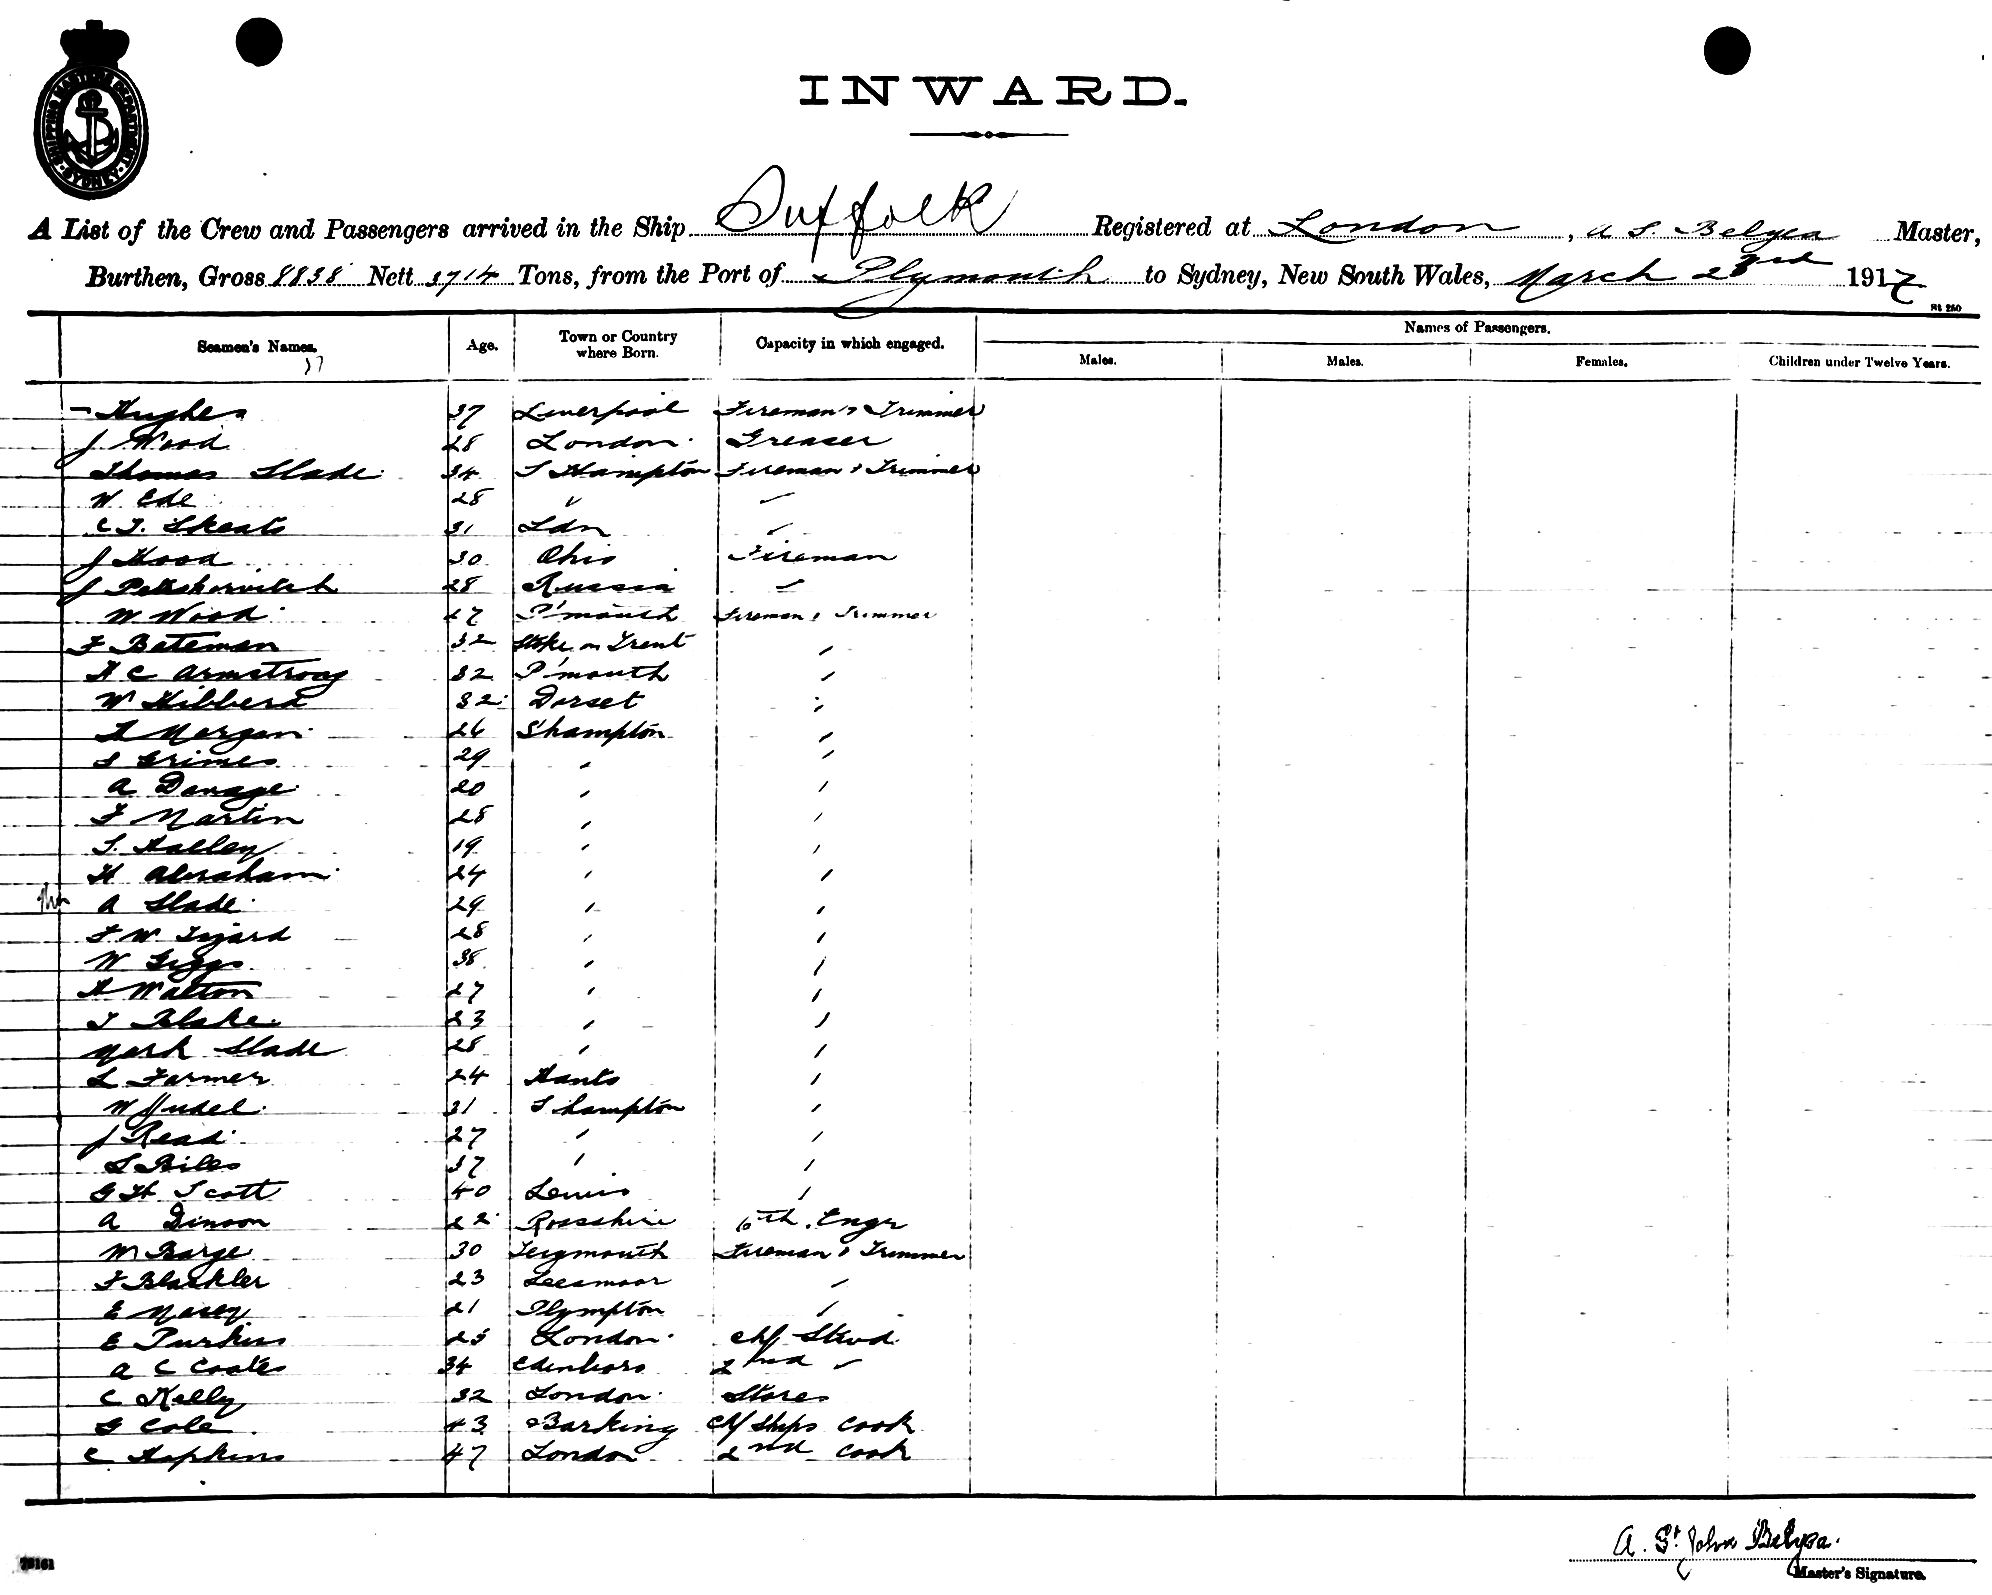 SHIPPING MASTER'S DEPARTMENT
SYDNEY
INWARD.
A List of the Crew and Passengers arrived in the Ship Suffolk Registered at London, A S. Belyea Master,
Burthen, Gross 8838 Nett 5714 Tons, from the Port of Plymouth to Sydney, New South Wales, March 23rd 1917
Seamen's Names. Age. Town or Country where Born. Capacity in which engaged. Names of Passengers.
Males. Males. Females. Children under Twelve Years.
37
Hughes 37 Liverpool Fireman & Trimmer
J Wood 28 London Greaser
Thomas Slade 34 S Hampton Fireman & Trimmer
W Ede 28 " "
C T. Skeats 31 Ldn "
J Hood 30 Ohio Fireman
J 28 Russia "
W Wood 47 P'mouth Fireman & Trimmer
F Bateman 32 Stoke on Trent "
H C Armstrong 32 P'mouth "
W Hibberd 32 Dorset "
H Morgan 26 S'hampton "
S Grimes 29 " "
A Danage 20 " "
F Martin 28 " "
S. Halley 19 " "
H Abraham 24 " "
A Slade 29 " "
F W Tizard 28 " "
W Giggs 38 " "
H Walton 27 " "
T Blake 23 " "
Mark Slade 28 " "
L Farmer 24 Hants "
W Judel 31 S hampton "
J Read 27 " "
S Biles 37 " "
G H Scott 40 Lewis "
A 22 Rossshire 6th. Engr
W Barge 30 Teignmouth Fireman & Trimmer
F Blackler 23 Leesmoor "
E Masey 21 Plympton "
E Purkis 25 London chf Stwd.
A C Coates 34 Edinboro 2nd "
C Kelly 32 London Stores
G Cole 43 Barking Chf Ships Cook
C Hopkins 47 London 2nd Cook
A. St John Belyea.
Master's Signature.